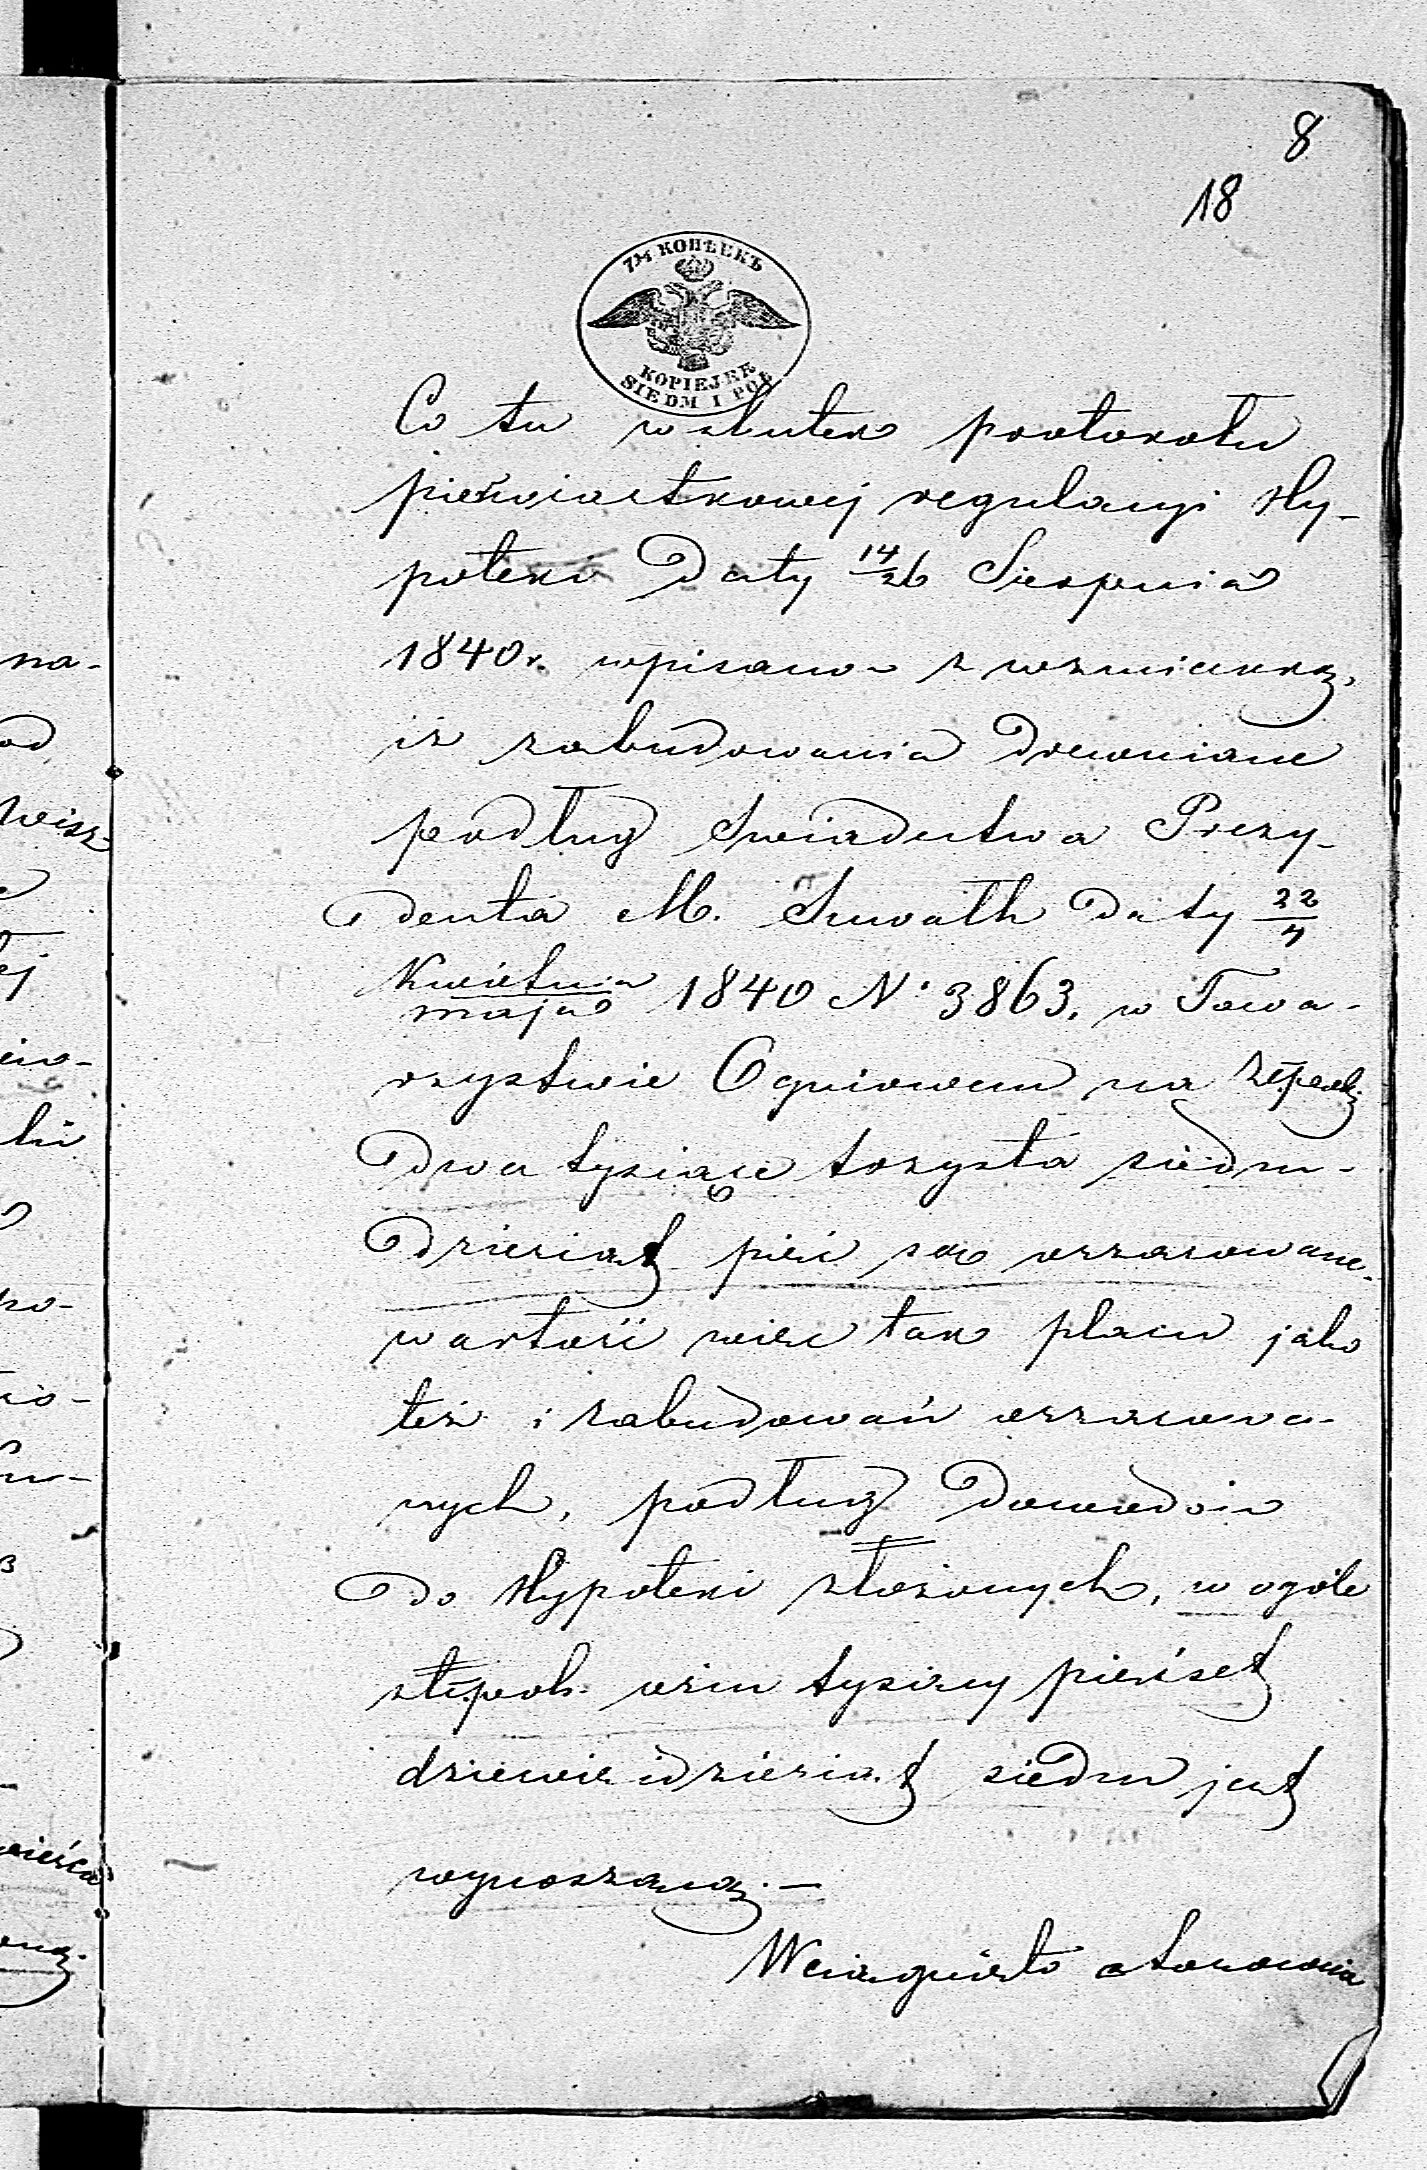 8
18
7½ КОПѢЕКЪ
KOPIEJEK
SIEDM I POŁ
Co tu wskutek protokołu
pierwiastkowej regulacyi Hy-
poteki Daty 14/26 Sierpnia
1840 r. wpisano z wzmianką,
iż zabudowania drewniane
podług Świadectwa Prezy-
denta M. Suwałk Daty 22/4
Kwietnia/maja 1840 N. 3863, w Towa-
rzystwie Ogniowem na złp.
Dwa tysiące trzysta siedm-
dziesiąt pięć są oszacowane
wartość więc tak placu jako
też i zabudowań oszacowa-
nych, podług Dowodów
do Hypoteki złożonych, w ogóle
złt.pol. ośm tysięcy pięćset
dziewięćdziesiąt siedm jest
wynoszącą. —
Wciągnięto
na-
od
ej
ki